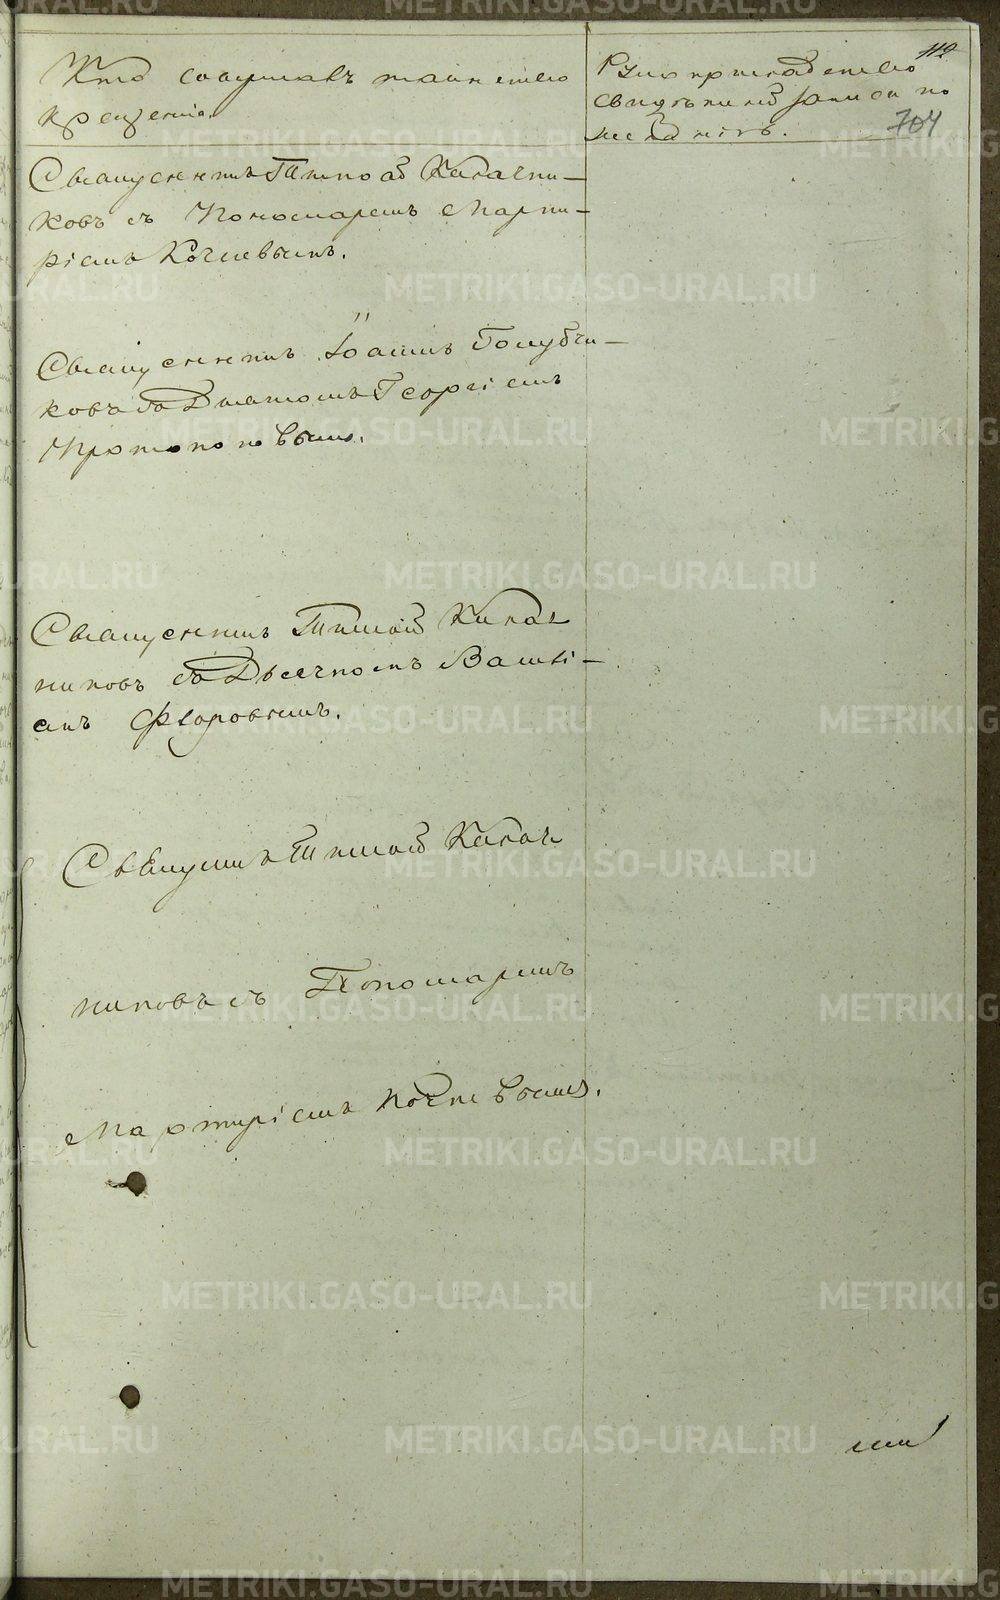 112
704
Кто совершалъ таинство
крещенія.
Рукоприкладство
свидѣтелей записи по
желанію.
Священникъ Тимофей Калачни-
ковъ съ Пономаремъ Марти-
ріемъ Кочневымъ.
Священникъ Іоаннъ Голубчи-
ковъ съ Дьякономъ Георгіемъ
Протопоповымъ.
Священникъ Тимофей Калач
никовъ съ Дьячкомъ Василі-
емъ Флоровымъ.
Священникъ Тимофей Калач
никовъ съ Пономаремъ
Мартиріемъ Кочневымъ.
METRIKI.GASO-URAL.RU